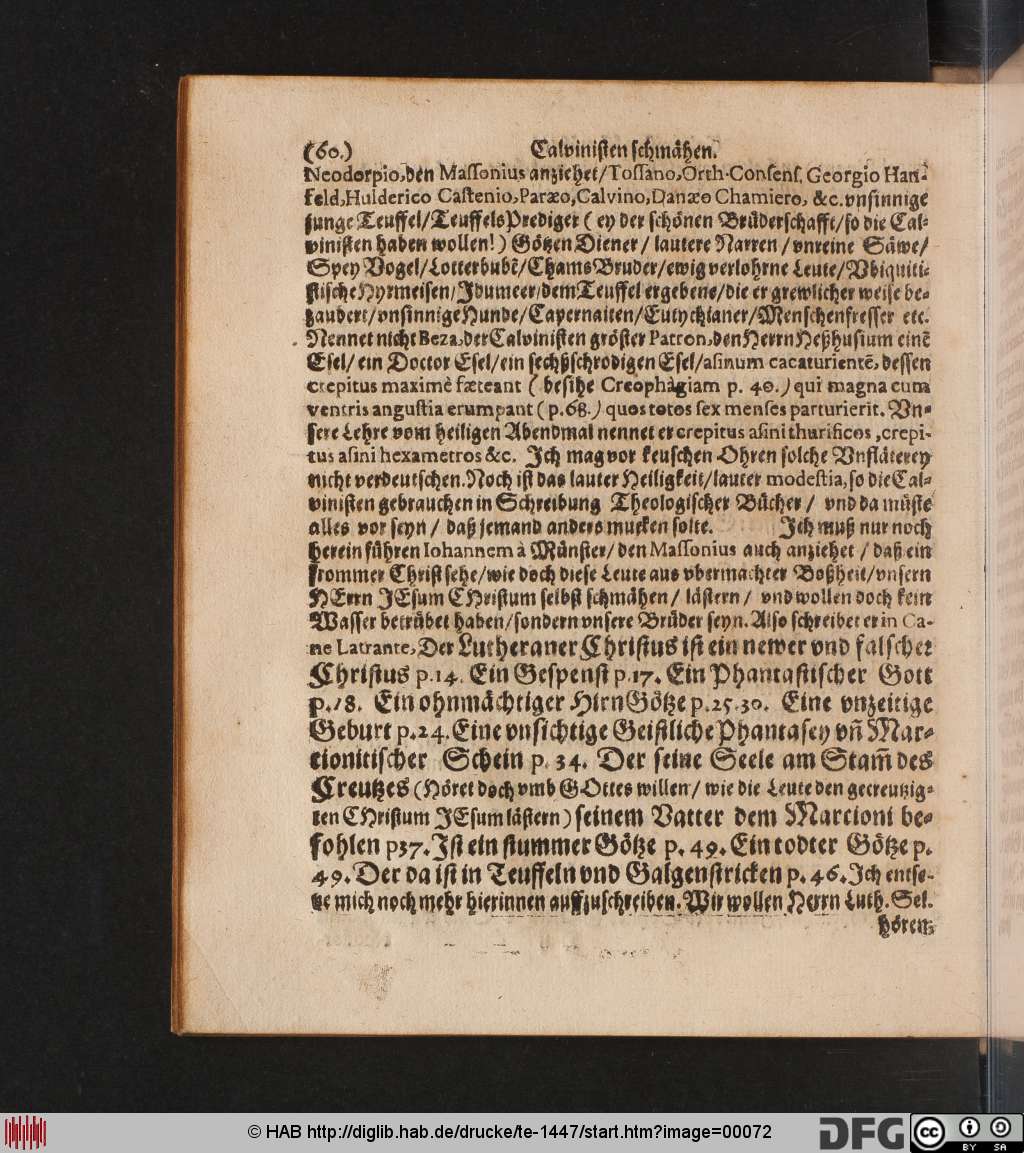 (60.) Calvinisten schmähen.
Neodorpio, den Massonius anziehet/ Tossano, Orth-Consens. Georgio Han-
feld, Hulderico Castenio, Paræo, Calvino, Danæo Chamiero, &c. vnsinnige
junge Teuffel/ TeuffelsPrediger ( ey der schönen Brüderschafft/ so die Cal-
vinisten haben wollen! ) Götzen Diener/ lautere Narren/ vnreine Säwe/
Spey Vogel/ Lotterbubē/ ChamsBruder/ ewig verlohrne Leute/ Vbiquiti-
stische Hyrmeisen/ Idumeer/ dem Teuffel ergebene/ die er grewlicher weise be-
zaubert/ vnsinnige Hunde/ Capernaiten/ Eutychianer/ Menschenfresser etc.
Nennet nicht Beza, der Calvinisten gröster Patron, den Herrn Heßhusium einē
Esel/ ein Doctor Esel/ ein sechßschrodigen Esel/ asinum cacaturientē, dessen
crepitus maximè fæteant ( besihe Creophagiam p. 40. ) qui magna cum
ventris angustia erumpant ( p. 68. ) quos totos sex menses parturierit. Vn-
sere Lehre vom heiligen Abendmal nennet er crepitus asini thurificos, crepi-
tus asini hexametros &c. Ich mag vor keuschen Ohren solche Vnfläterey
nicht verdeutschen. Noch ist das lauter Heiligkeit/ lauter modestia, so die Cal-
vinisten gebrauchen in Schreibung Theologischer Bücher/ vnd da müste
alles vor seyn/ daß jemand anders mucken solte. Ich muß nur noch
herein führen Iohannem à Münster/ den Massonius auch anziehet/ daß ein
frommer Christ sehe/ wie doch diese Leute aus vbermachter Boßheit/ vnsern
HErrn JEsum CHristum selbst schmähen/ lästern/ vnd wollen doch kein
Wasser betrübet haben/ sondern vnsere Brüder seyn. Also schreibet er in Ca-
ne Latrante, Der Lutheraner Christus ist ein newer vnd falscher
Christus p. 14. Ein Gespenst p. 17. Ein Phantastischer Gott
p. 18. Ein ohnmächtiger HirnGötze p. 25. 30. Eine vnzeitige
Geburt p. 24. Eine vnsichtige Geistliche Phantasey vñ Mar-
cionitischer Schein p. 34. Der seine Seele am Stam̃ des
Creutzes (Höret doch vmb GOttes willen/ wie die Leute den gecreutzig-
ten CHristum JEsum lästern) seinem Vatter dem Marcioni be-
fohlen p 37. Ist ein stummer Götze p. 49. Ein todter Götze p.
49. Der da ist in Teuffeln vnd Galgenstricken p. 46. Ich entse-
tze mich noch mehr hierinnen auffzuschreiben. Wir wollen Herrn Luth. Sel.
hören:
© HAB http://diglib.hab.de/drucke/te-1447/start.htm?image=00072
DFG
cc
BY SA